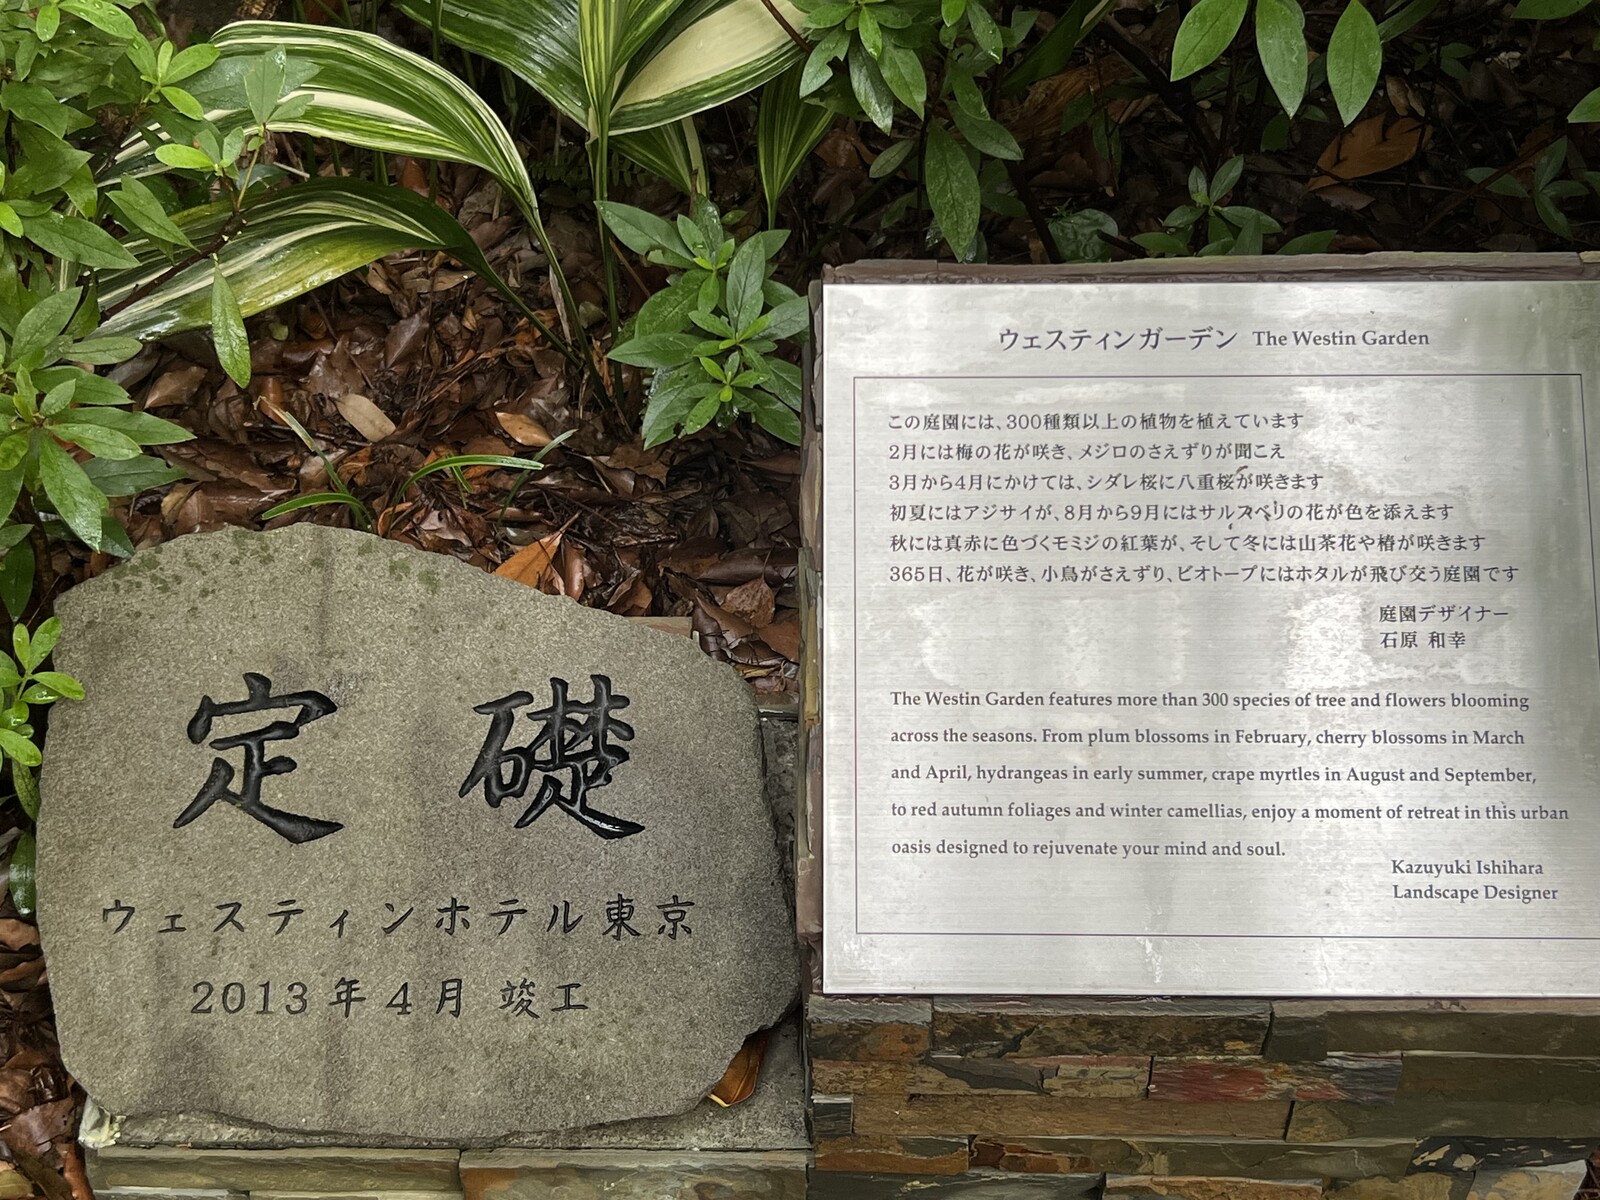 定 礎
ウェスティンホテル東京
2013年4月 竣工
ウェスティンガーデン The Westin Garden
この庭園には、300種類以上の植物を植えています
2月には梅の花が咲き、メジロのさえずりが聞こえ
3月から4月にかけては、シダレ桜に八重桜が咲きます
初夏にはアジサイが、8月から9月にはサルスベリの花が色を添えます
秋には真赤に色づくモミジの紅葉が、そして冬には山茶花や椿が咲きます
365日、花が咲き、小鳥がさえずり、ビオトープにはホタルが飛び交う庭園です
庭園デザイナー
石原 和幸
The Westin Garden features more than 300 species of tree and flowers blooming
across the seasons. From plum blossoms in February, cherry blossoms in March
and April, hydrangeas in early summer, crape myrtles in August and September,
to red autumn foliages and winter camellias, enjoy a moment of retreat in this urban
oasis designed to rejuvenate your mind and soul.
Kazuyuki Ishihara
Landscape Designer